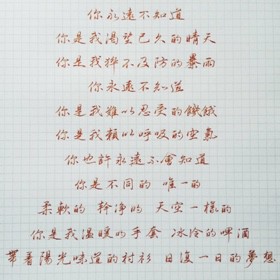 你永遠不知道
你是我渴望已久的晴天
你是我猝不及防的暴雨
你永遠不知道
你是我難以忍受的饑餓
你是我賴以呼吸的空氣
你也許永遠不會知道
你是不同的 唯一的
柔軟的 幹淨的 天空一樣的
你是我溫暖的手套 冰冷的啤酒
帶著陽光味道的衬衫 日復一日的夢想